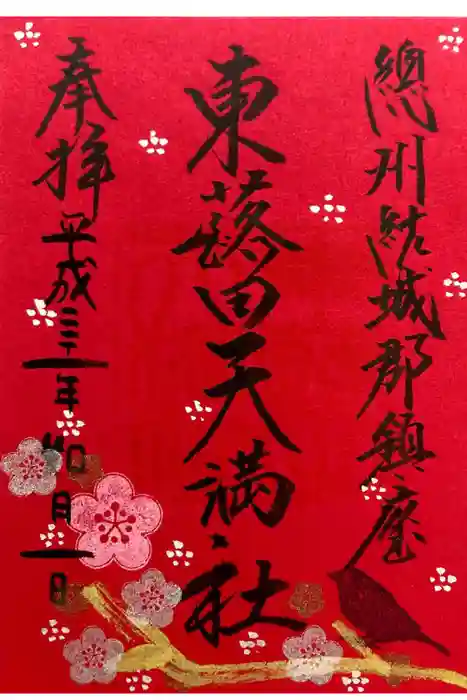 總州結城郡鎮座
東蕗田天満社
奉拝 平成三十一年如月一日